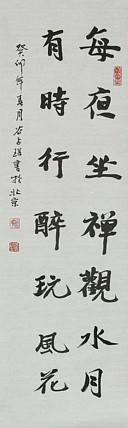 每夜坐禪觀水月
有時行醉玩風花
癸卯年夏月谷占琪書於北京